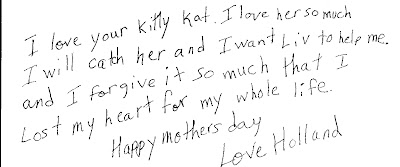 I love your kitty kat. I love her so much
I will catch her and I want Liv to help me.
and I forgive it so much that I
Lost my heart for my whole life.
Happy mothers day
Love Holland